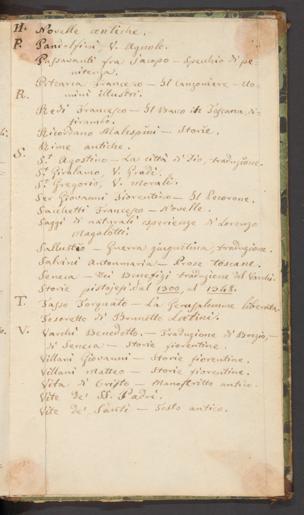 N. Novelle antiche.
P. Pandolfini, V. Agnolo.
Passavanti fra Jacopo — Specchio di pe-
nitenza.
Petrarca, Francesco — Il Canzoniere — Uo-
mini illustri.
R. Redi Francesco — Il Bacco in Toscana, di-
tirambo.
Ricordano Malespini — Storie.
Rime antiche.
S. S. Agostino — La città di Dio, traduzione.
S. Girolamo, V. Gradi.
S. Gregorio, V. Morali.
Ser Giovanni Fiorentino — Il Pecorone.
Sacchetti Francesco — Novelle.
Saggi di naturali esperienze di Lorenzo
Magalotti
Sallustio — Guerra giugurtina, traduzione.
Salvini Antonmaria — Prose Toscane.
Seneca — Dei Benefizj traduzione del Varchi.
Storie pistojesi dal 1300 al 1348.
T. Tasso Torquato — La Gerusalemme liberata.
Tesoretto di Brunetto Latini.
V. Varchi Benedetto. — Traduzione di Boezio, —
di Seneca — Storie fiorentine.
Villani Giovanni — Storie fiorentine.
Villani Matteo — Storie fiorentine.
Vita di Cristo — Manoscritto antico.
Vite de' SS. Padri.
Vite de' Santi — Testo antico.